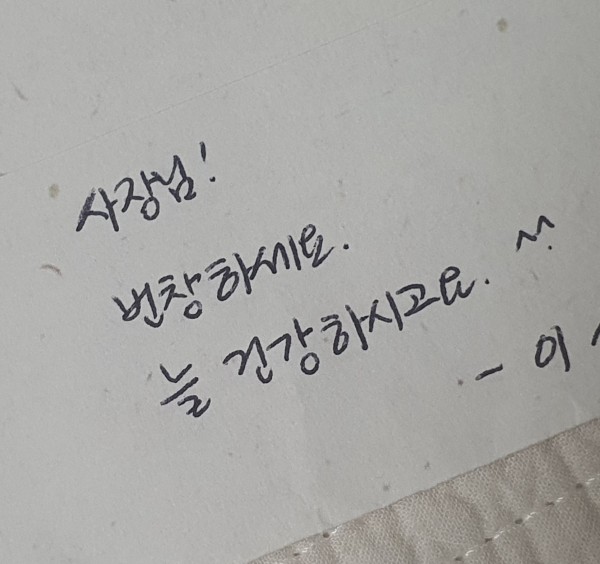 사장님!
번창하세요.
늘 건강하시고요. ^^
- 이